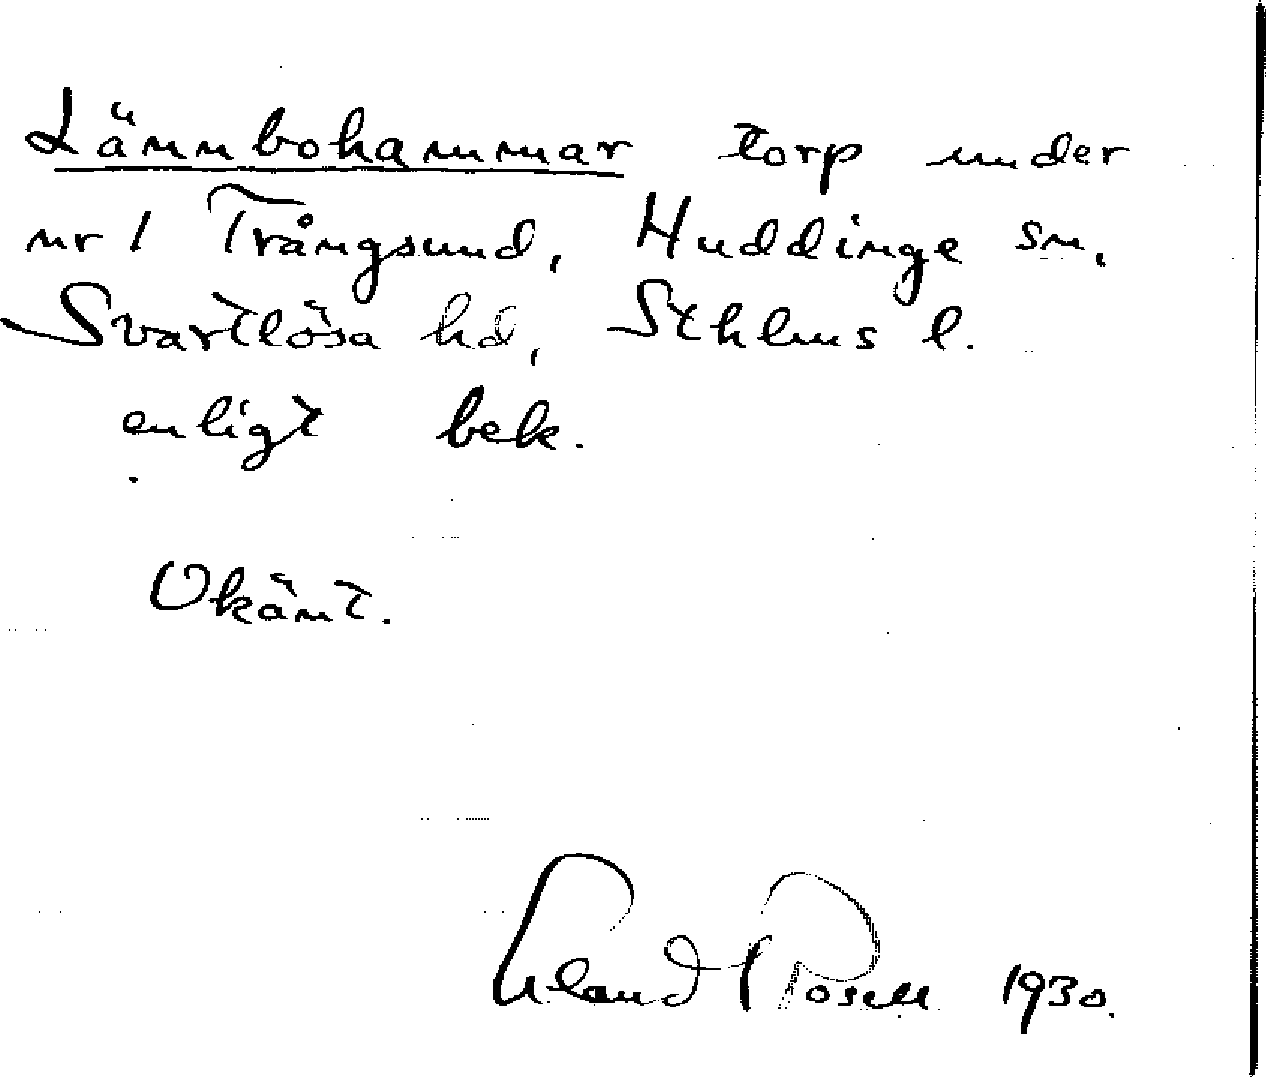 Lännbohammar torp under
nr 1 Trångsund, Huddinge sn,
Svartlösa hd, Sthlms l.
enligt bek.
Okänt.
Erland Rosell 1930.